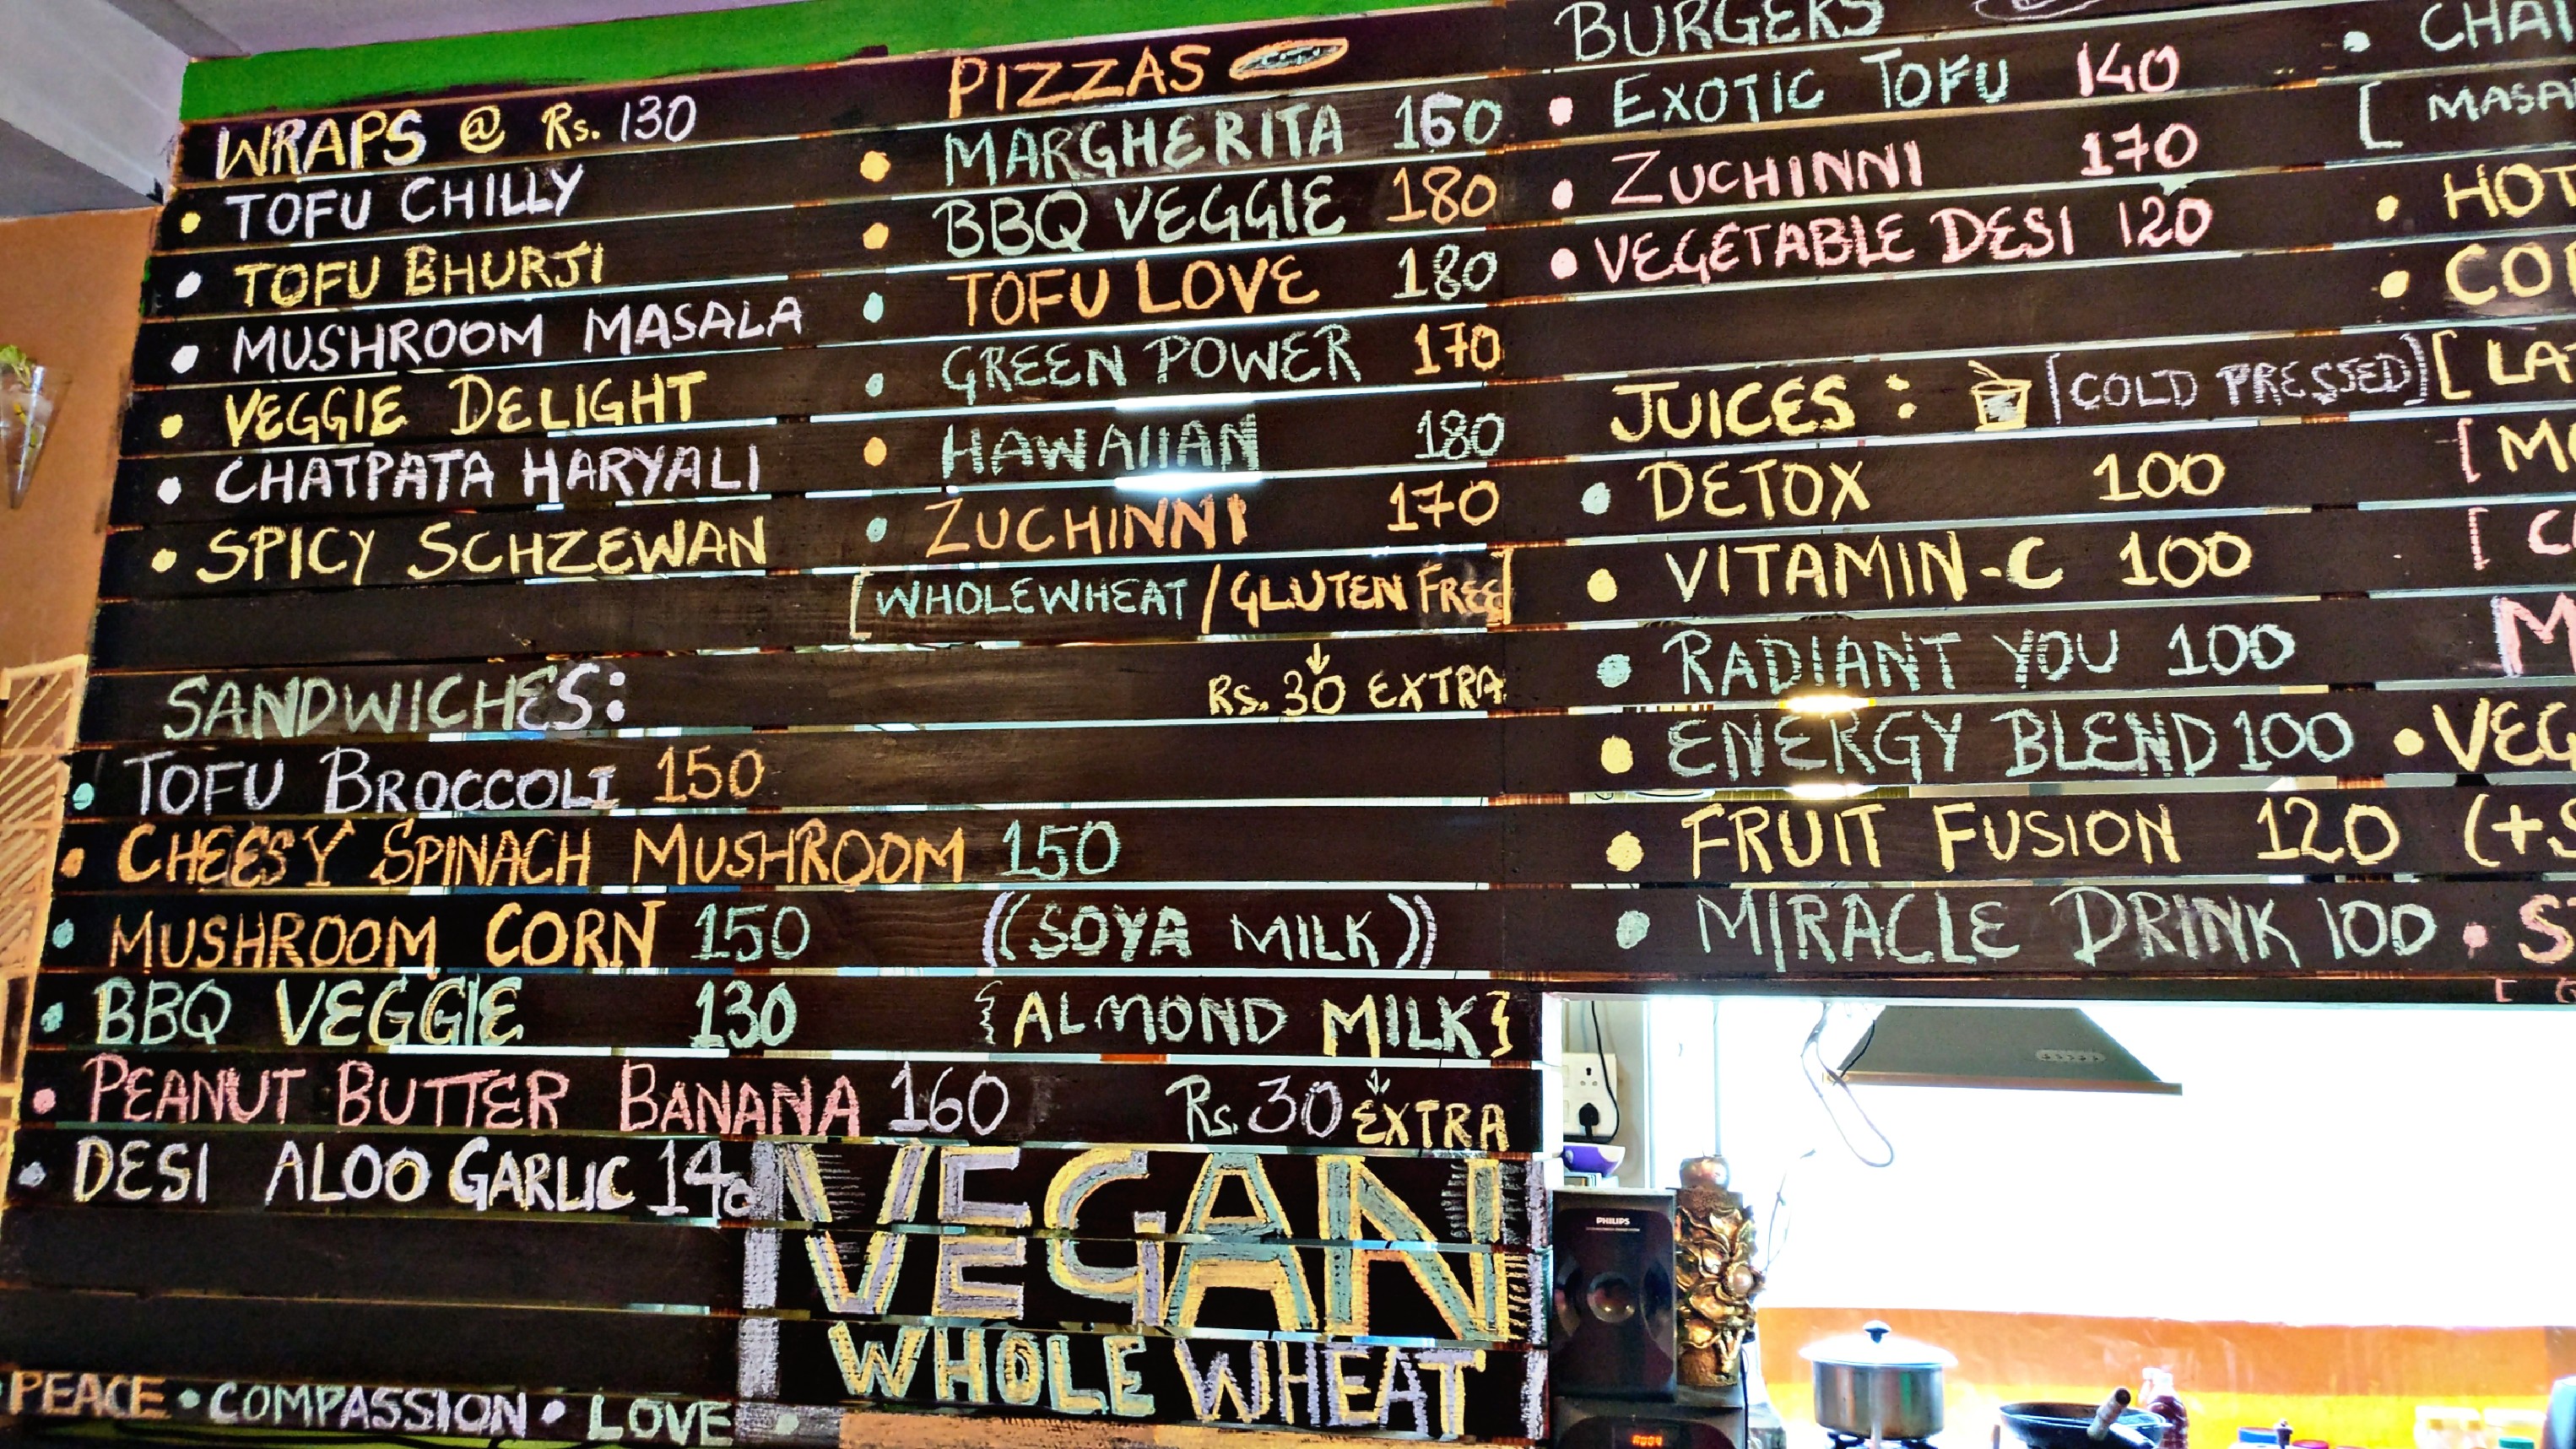 WRAPS @ Rs. 130
• TOFU CHILLY
• TOFU BHURJI
• MUSHROOM MASALA
• VEGGIE DELIGHT
• CHATPATA HARYALI
• SPICY SCHZEWAN
SANDWICHES:
• TOFU BROCCOLI 150
• CHEESY SPINACH MUSHROOM 150
• MUSHROOM CORN 150
• BBQ VEGGIE 130
• PEANUT BUTTER BANANA 160
• DESI ALOO GARLIC 140
PEACE • COMPASSION • LOVE •
PIZZAS
• MARGHERITA 160
• BBQ VEGGIE 180
• TOFU LOVE 180
• GREEN POWER 170
• HAWAIIAN 180
• ZUCHINNI 170
[WHOLEWHEAT / GLUTEN FREE]
Rs. 30 EXTRA
((SOYA MILK))
{ALMOND MILK}
Rs. 30 EXTRA
VEGAN
WHOLE WHEAT
BURGERS
• EXOTIC TOFU 140
• ZUCHINNI 170
• VEGETABLE DESI 120
JUICES : [COLD PRESSED]
• DETOX 100
• VITAMIN-C 100
• RADIANT YOU 100
• ENERGY BLEND 100
• FRUIT FUSION 120
• MIRACLE DRINK 100
• CHAI
[ MASA
• HOT
PHILIPS